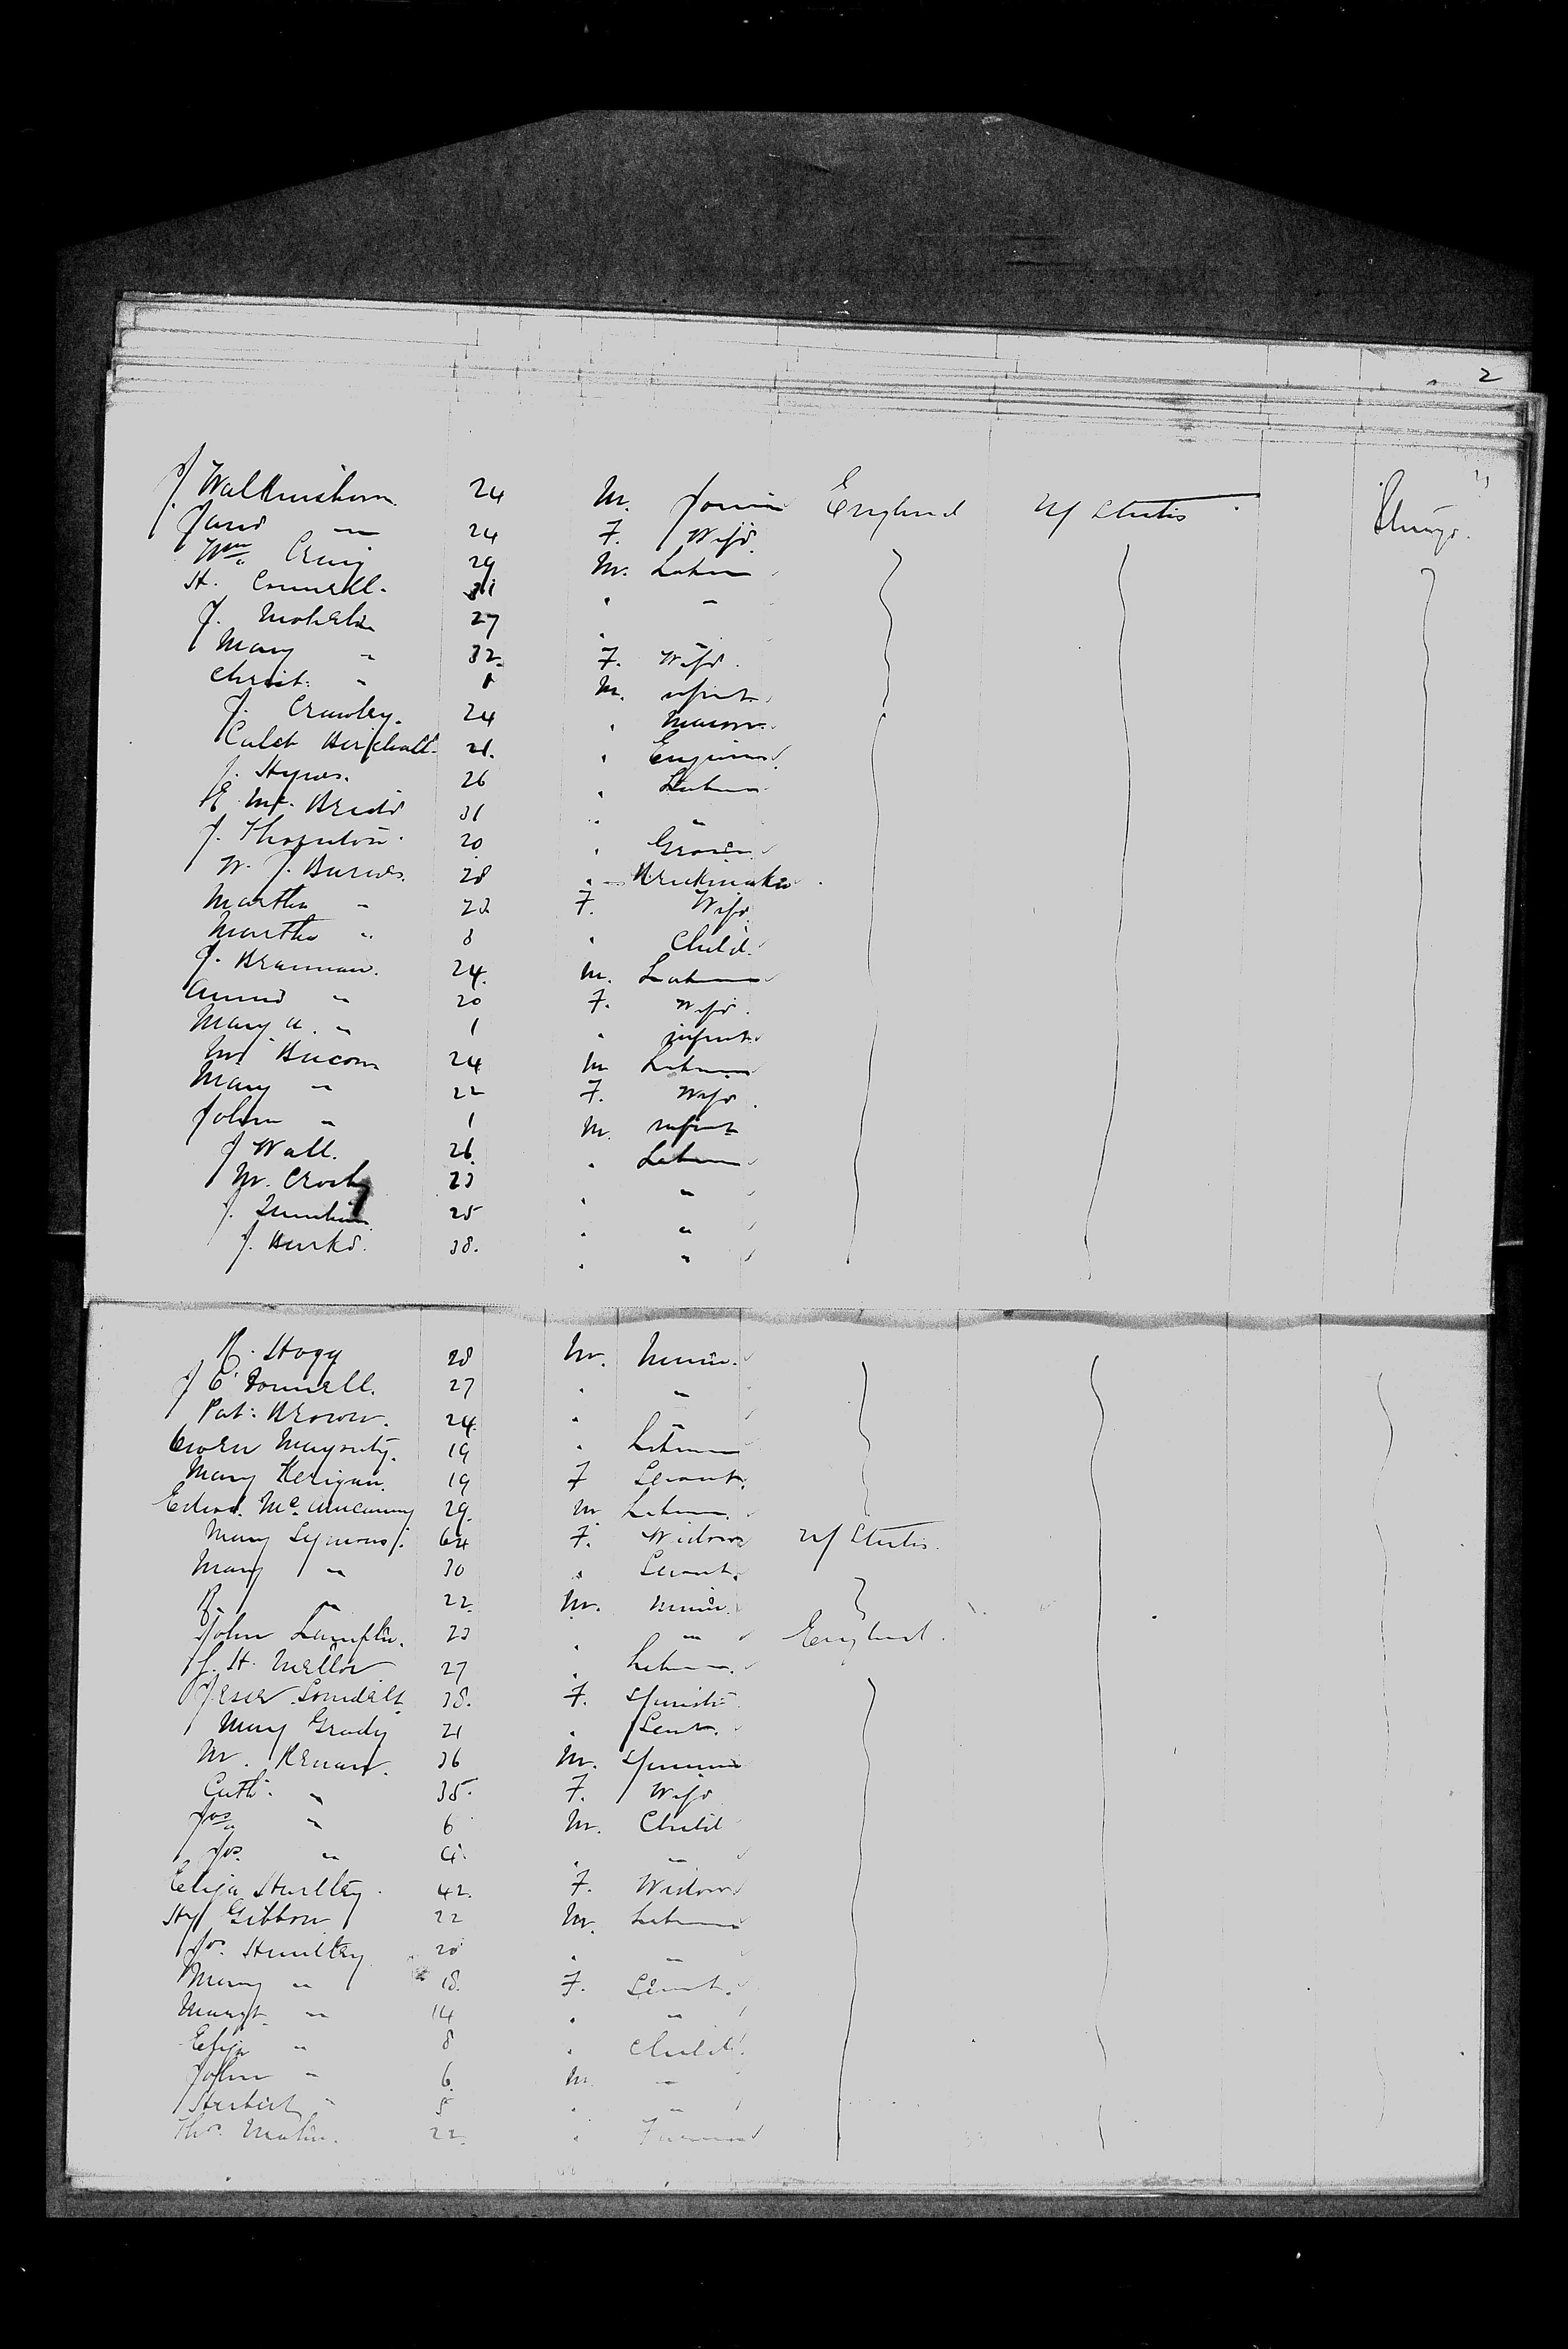 2
J Walkinshaw 24 M. Joiner England U/ States Steerage.
Jane " 24 F. Wife.
Wm. Craig 29 M. Labourer
H. Connell. 31 " "
J. 27 "
Mary " 32. F. Wife.
Christ: " 1 M. infant
J. Crawley. 24 " Mason
Caleb Birchall 21. " Engineer
J. Hynes. 26 " Labourer
E Mc. Bride 31 " "
J. Thornton. 20 " Grocer
W. J. Burns. 28 " Brickmaker
Martha " 22 F. Wife.
Martha " 8 " Child.
J. Brannan. 24. M. Labourer
Annie " 20 F. Wife.
Mary A. " 1 " infant
Bacon 24 M Labourer
Mary " 22 F. Wife.
John " 1 M. infant
J Wall. 26. " Labourer
M. Crosby 23 " "
J. 25 " "
J. Burke. 38. " "
R. Hogg 28 M. Miner.
J O'Donnell. 27 " "
Pat: Brown. 24. " "
Owen 19 " Labourer
Mary Kerigan. 19 F Servant.
Edwd. Mc. 29. M Labourer.
Mary 64 F. Widow U/ States.
Mary " 30 " Servant.
R. " 22. M. Miner.
John 23 " " England.
J. H. Mellor 27 " Labourer.
38. F. Spinster
Mary Grady 21 " Servt.
M. 36 M. Spinner
Cath. " 35. F. Wife
Jas " 6 M. Child
Jos. " 4. " "
Eliza 42. F. Widow
Hy Gibbon 22 M. Labourer
Jos. 20 " "
Mary " 18. F. Servant.
Margt. " 14 " "
Eliza " 8 " Child.
John " 6. M. "
Herbert " 5 " "
Thos. 22. "